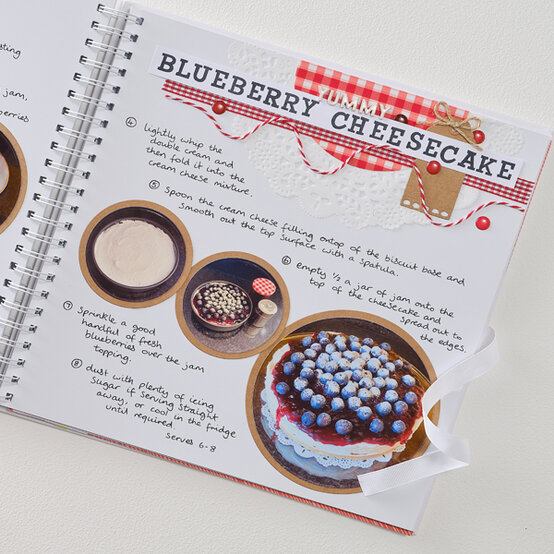 sting
jam,
berries
YUMMY
BLUEBERRY CHEESECAKE
④ lightly whip the
double cream and
then fold it into the
cream cheese mixture.
⑤ Spoon the cream cheese filling ontop of the biscuit base and
smooth out the top surface with a spatula.
⑥ empty ½ a jar of jam onto the
top of the cheesecake and
spread out to
the edges.
⑦ Sprinkle a good
handful of fresh
blueberries over the jam
topping.
⑧ dust with plenty of icing
Sugar if serving straight
away, or cool in the fridge
until required.
Serves 6-8